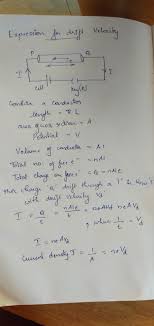 Expression for drift Velocity
P
Q
I
I
cell
key(K)
Consider a conductor
length = l
area of cross section = A
Potential = V
Volume of conductor = Al
Total no. of free e⁻ = nAl
Total charge on free e⁻ Q = nAle
This charge 'Q' drift through a 'l' in time 't'
with drift velocity Vd
I = Q/t = nAle/t = neAVd
where l/t = Vd
I = neAVd
Current density J = I/A = neVd